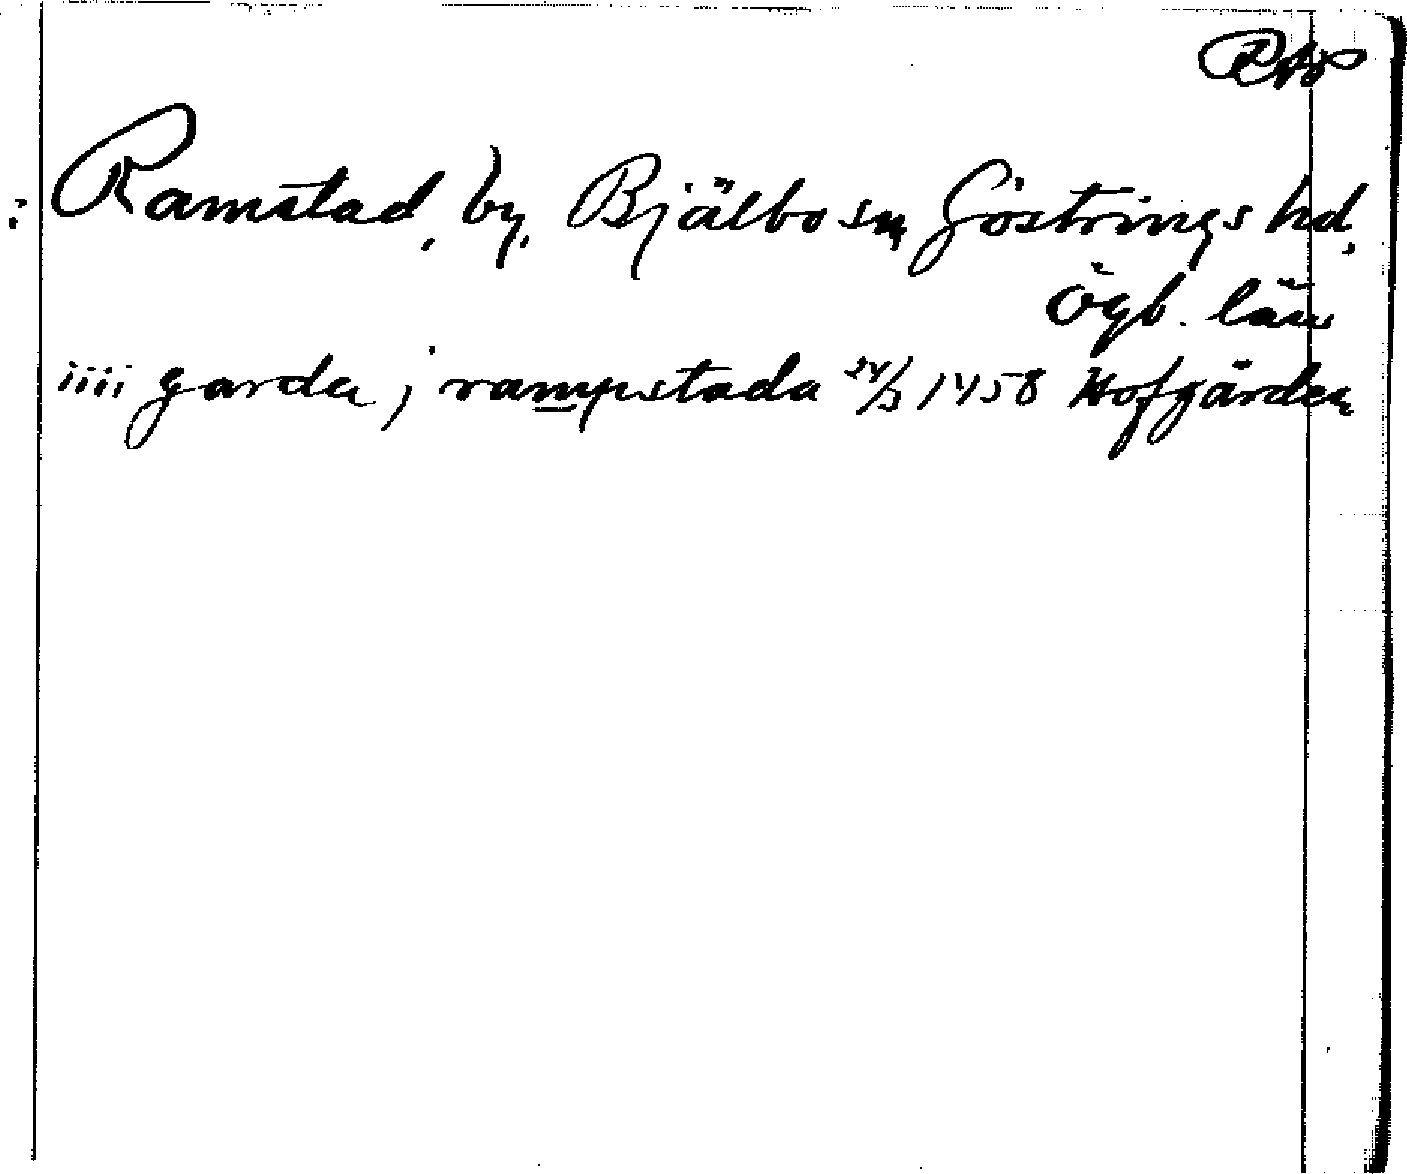 : Ramstad, by, Bjälbo sn, Göstrings hd,
Ögb. län
iiii garda j rampstada 24/3 1458 Hofgården